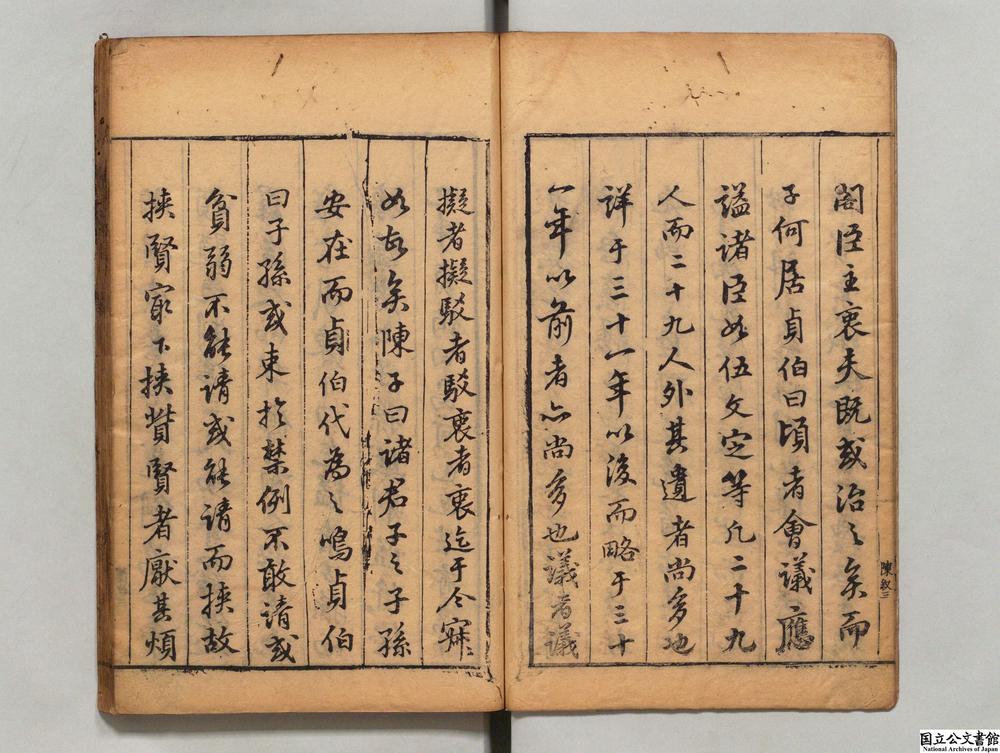 閣臣主衷夫既或治之矣而
子何居貞伯曰頃者會議應
謚諸臣如伍文定等凡二十九
人而二十九人外其遺者尚多也
詳于三十一年以後而略于三十
一年以前者亦尚多也議者議
陳敘三
擬者擬駁者駁衷者衷迄于今寐〻
如故矣陳子曰諸君子之子孫
安在而貞伯代為之鳴貞伯
曰子孫或束於禁例不敢請或
貧弱不能請或能請而挾故
挾賢寂下挾貲賢者厭其煩
国立公文書館
National Archives of Japan